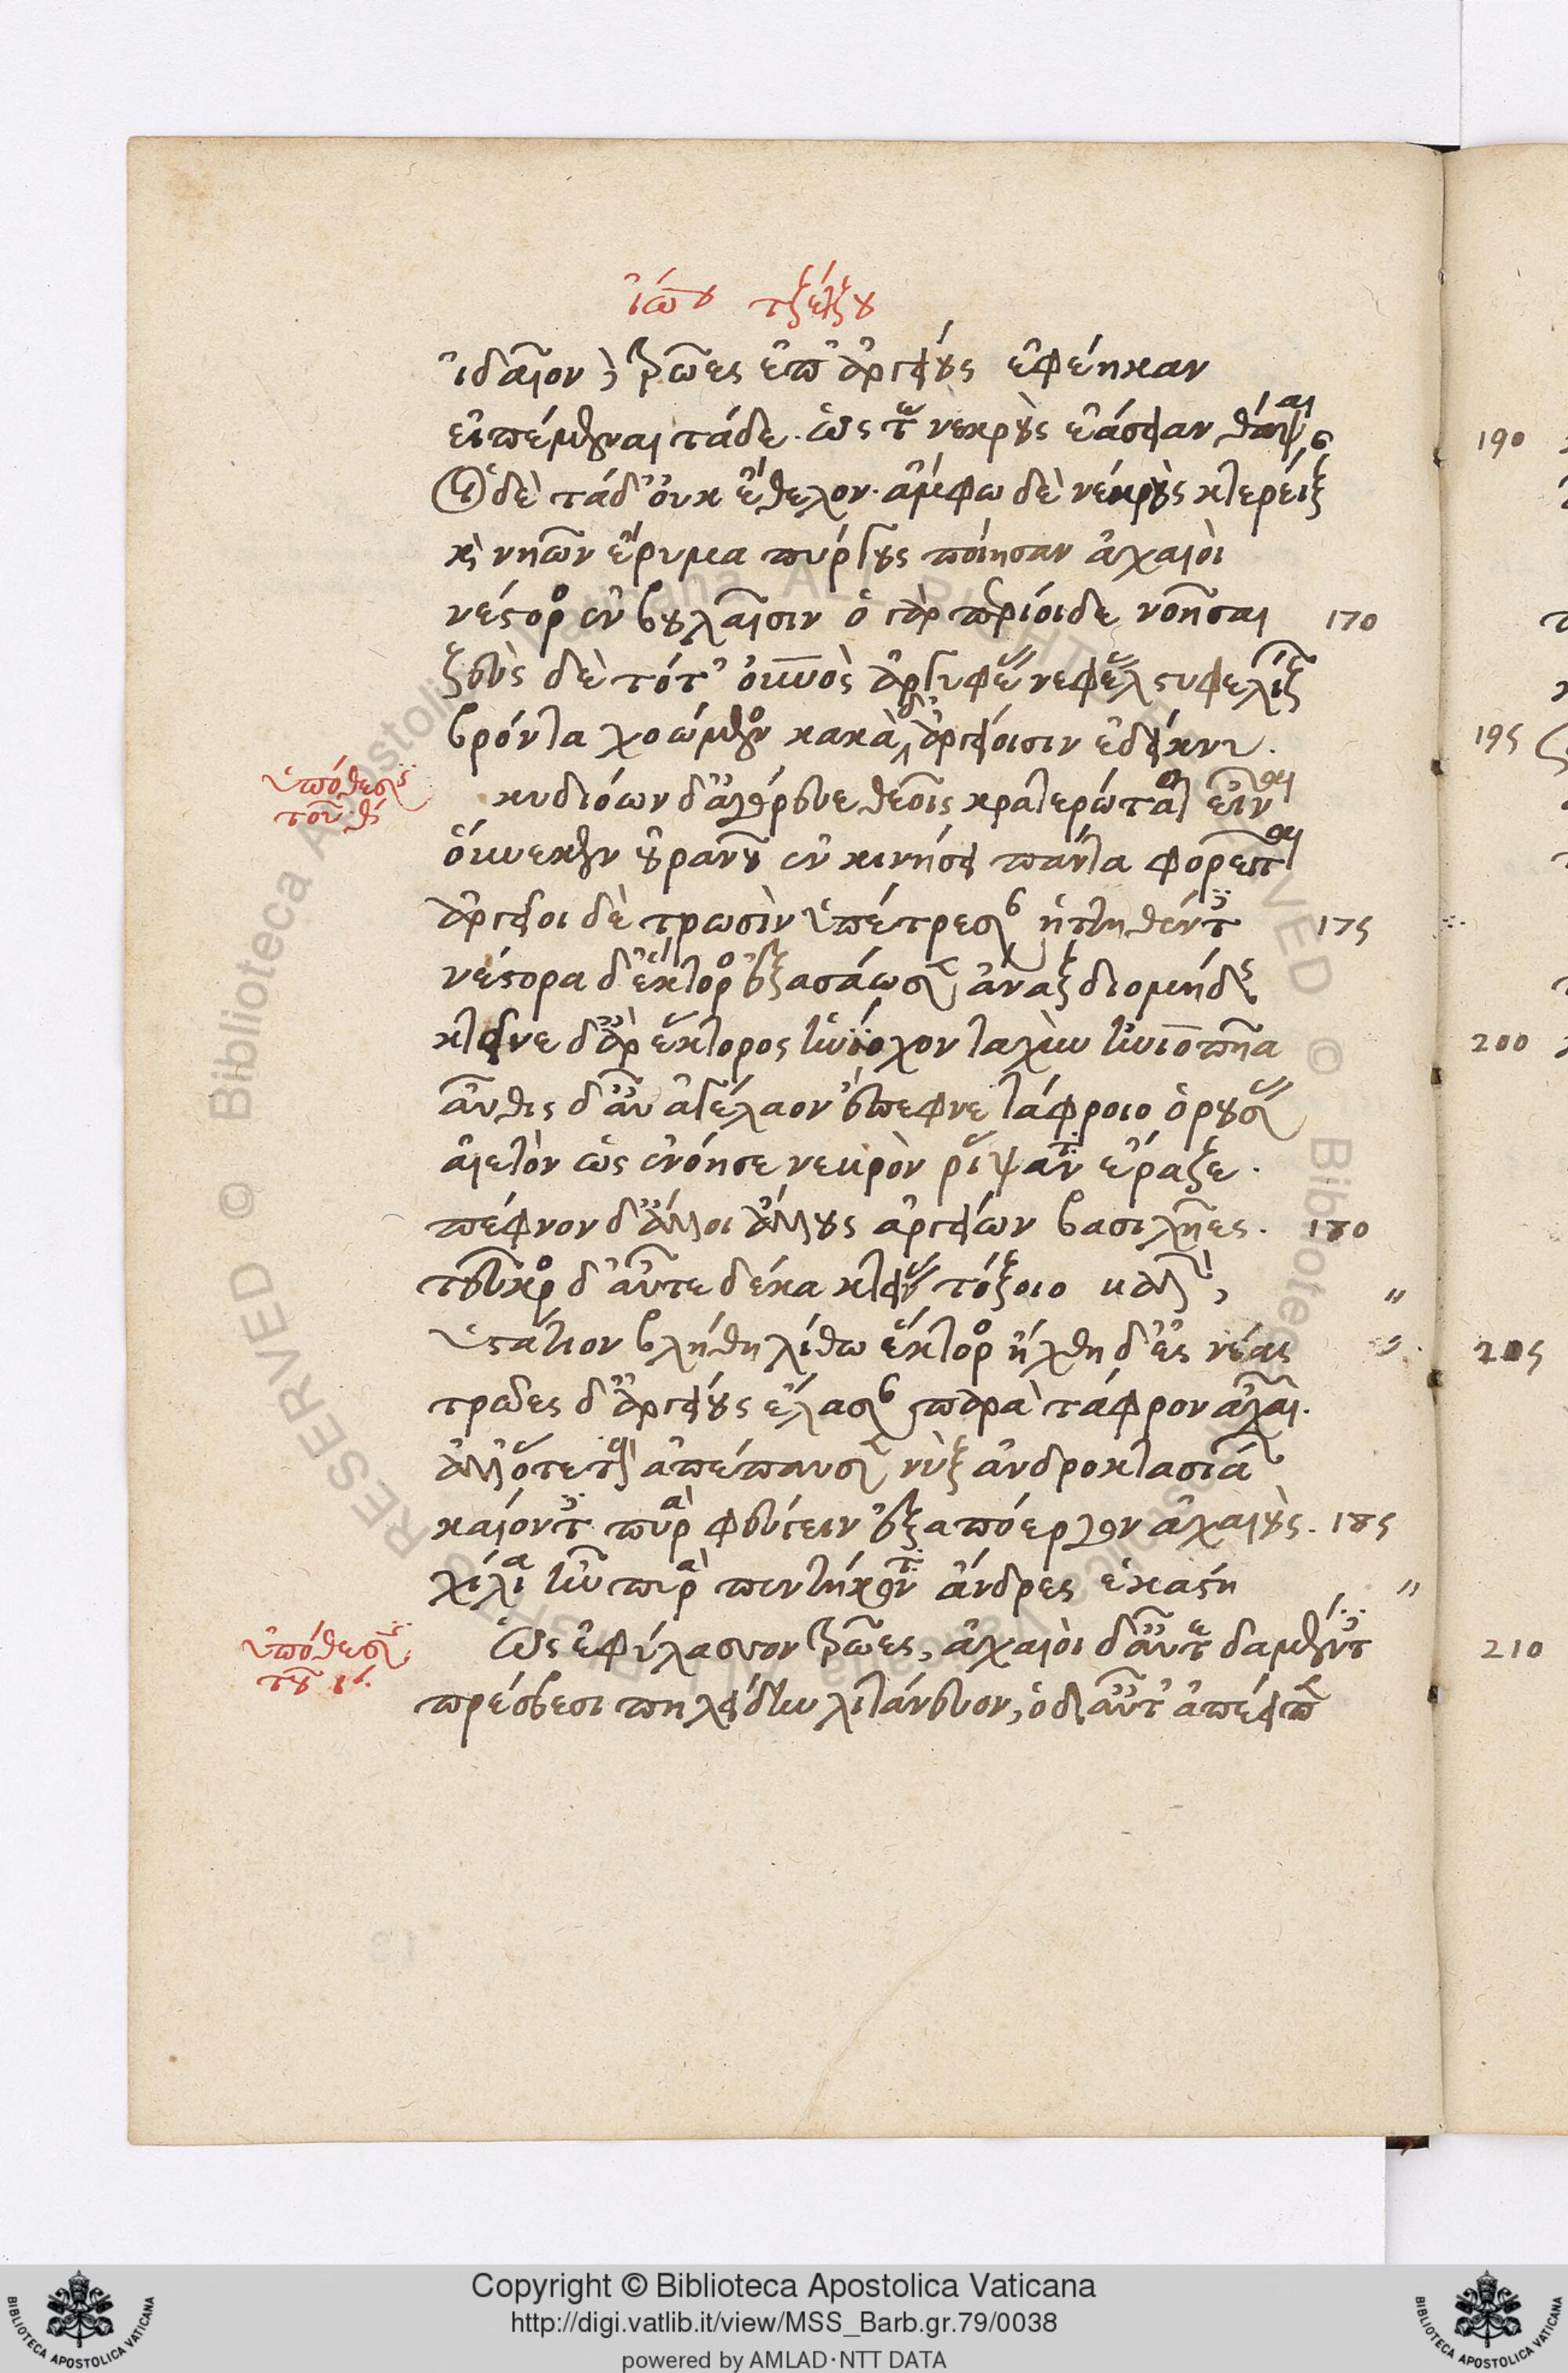 ἰωάννου τζέτζου
ἰδαῖον δὲ τρῶες ἐπ' ἀργείους ἐφέηκαν
εἰπέμεναι τάδε. ὥς τε νεκροὺς ἐάσειαν θάψαι
οἱ δὲ τάδ' οὐκ ἔθελον. ἄμφω δὲ νεκροὺς κτερέιξαν
καὶ νηῶν ἔρυμα πύργους ποίησαν ἀχαιοὶ
νέστορος ἐν βουλαῖσιν ὁ γὰρ περίοιδε νοῆσαι 170
ζεὺς δὲ τότ' οἰωνοὺς ἀργυφέης νεφέλης στυφελίξας
βρόντα χωόμενος κακὰ δ' ἀργείοισιν ἐδείκνυ.
ὑπόθεσις
τοῦ θ
κυδιόων δ' ἀγόρευε θεοῖς κρατερώτατος εἶναι
οὕνεκεν οὐρανοῦ ἐν κινήσει πάντα φορεῖται
ἀργεῖοι δὲ τρωσὶν ὑπέτρεσαν ἡττηθέντες 175
νέστορα δ' ἕκτορος ἐξεσάωσεν ἄναξ διομήδης
κτεῖνε δ' ἄρ' ἕκτορος ἡνίοχον ταχὺν ἠνιοπῆα
αὖθις δ' αὖ ἀγέλαον ἔπεφνε τάφροιο ὀρούσας
αἰετὸν ὡς ἐνόησε νεκρὸν ῥίψαντα ἔραζε.
πέφνον δ' ἄλλοι ἄλλους ἀργείων βασιλῆες. 180
τεῦκρος δ' αὖτε δέκα κτείνας τόξοιο
ὑστάτιον βλήθη λίθω ἕκτορος ἤχθη δ' ἐς νέας
τρῶες δ' ἀργείους ἔλασαν παρὰ τάφρον
ἀλλ' ὅτε τοὺς ἀπέπαυσε νὺξ ἀνδροκτασίας
καίοντες πυρὰ φεύγειν ἐξαπόεργον ἀχαιούς. 185
χίλια ἦν πυρὰ πεντήκοντα ἄνδρες ἑκάστη
ὑπόθεσις
τοῦ ι
Ὣς ἐφύλασσον τρῶες, ἀχαιοὶ δ' αὖτε δαμέντες
πρέσβεσι πηλείδην λιτάνευον, ὁ δ' αὖτ' ἀπέειπε
190
195
200
205
210
Copyright © Biblioteca Apostolica Vaticana
http://digi.vatlib.it/view/MSS_Barb.gr.79/0038
powered by AMLAD·NTT DATA